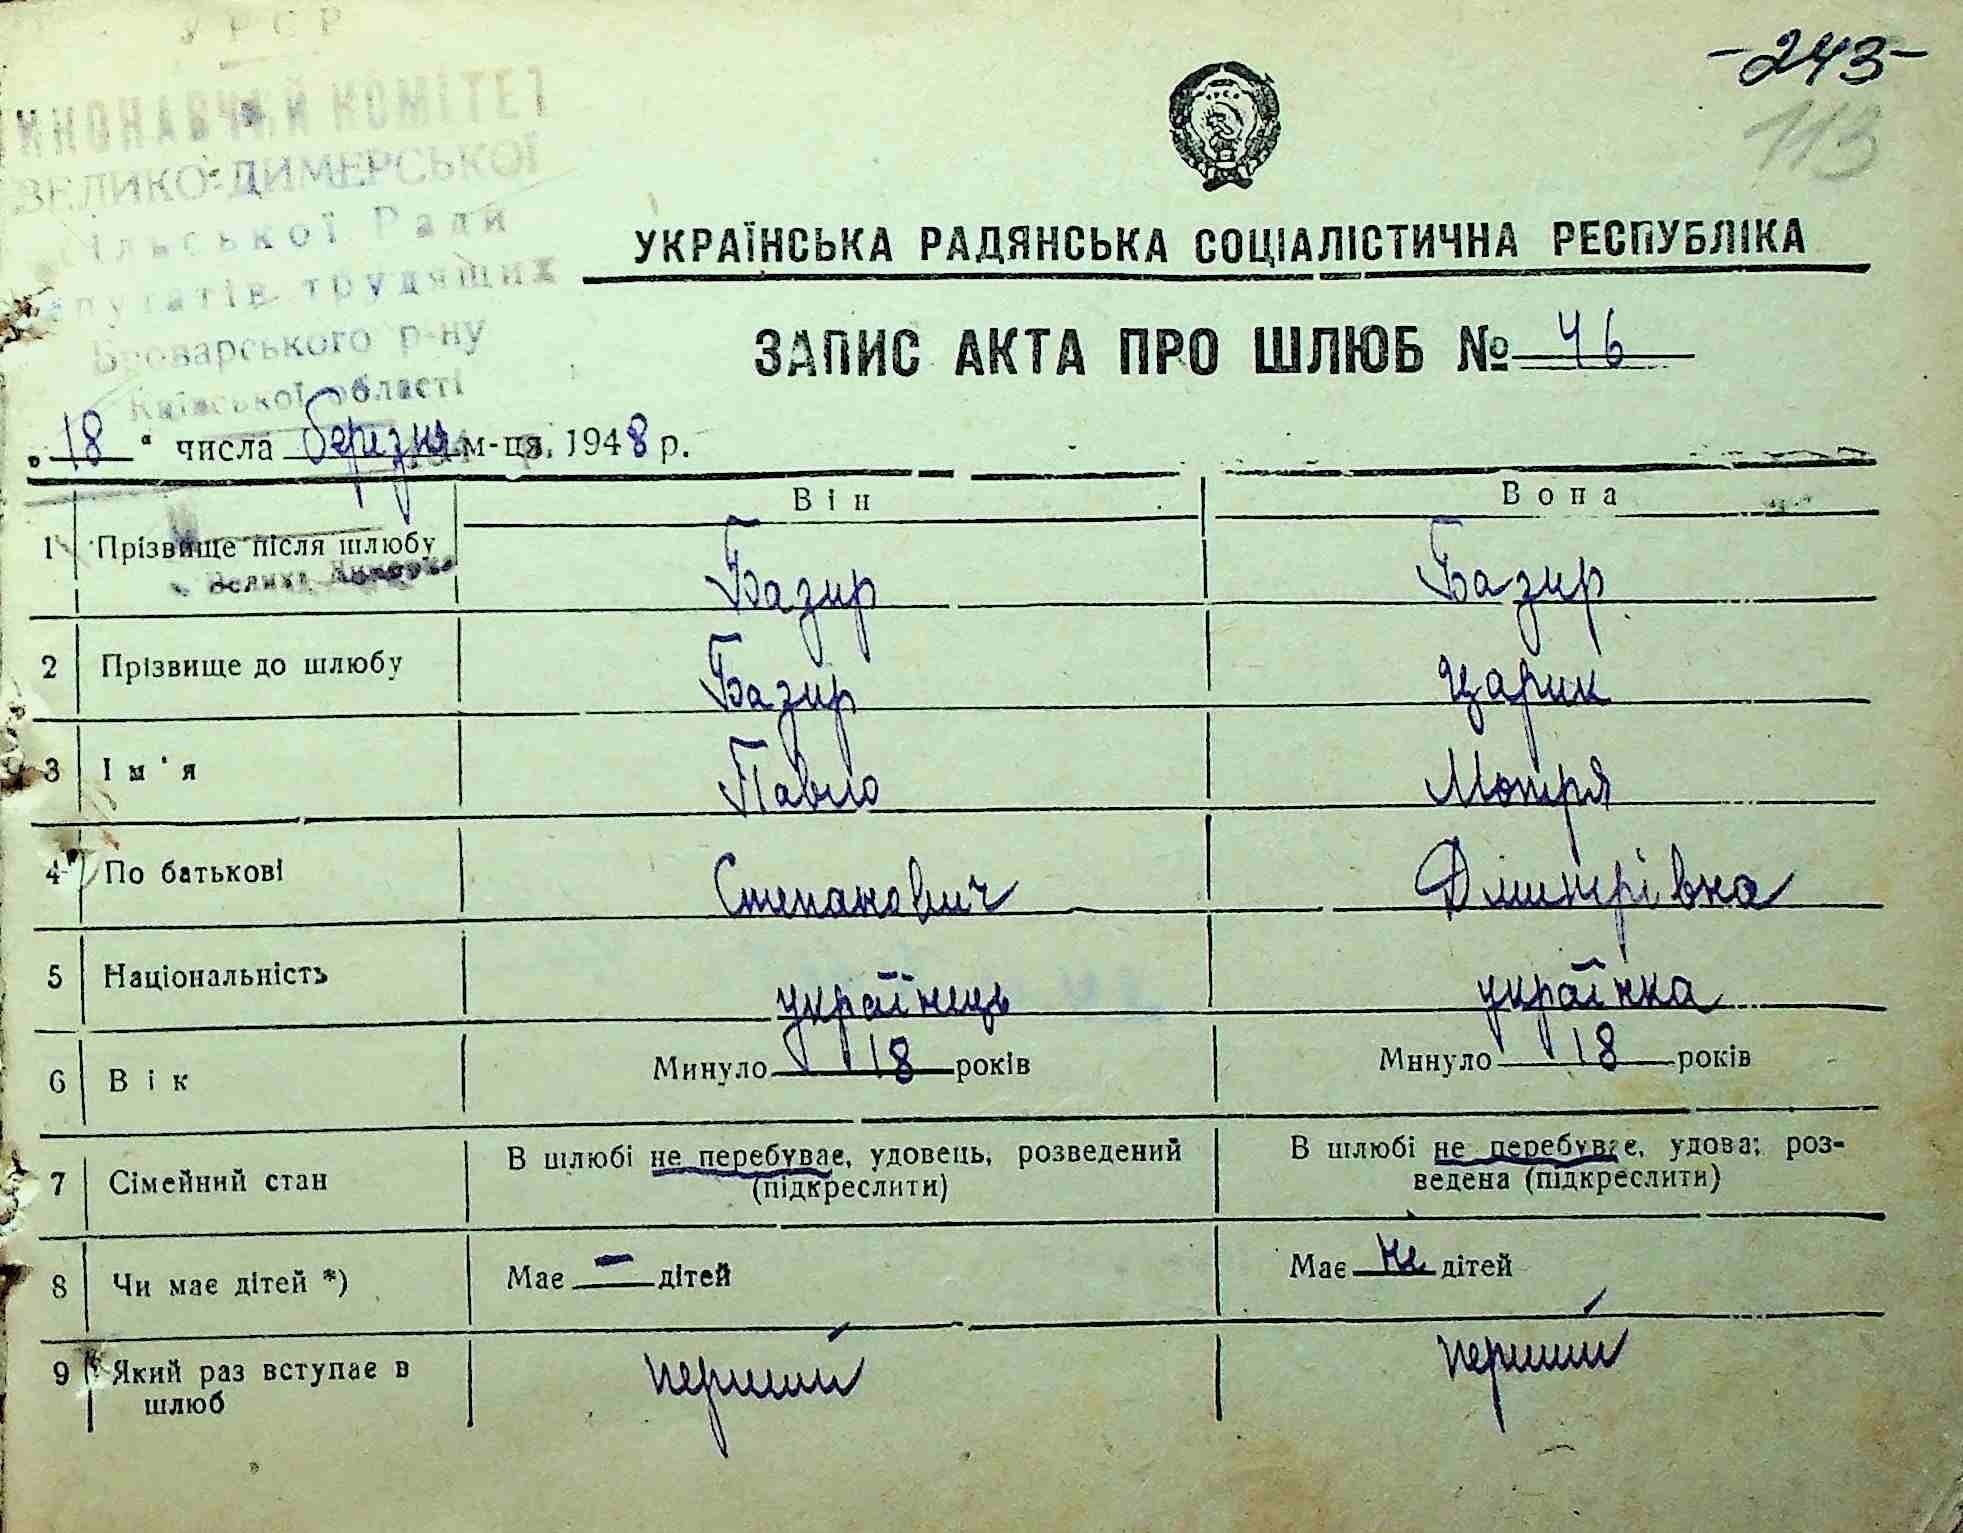 УРСР
-243-
113
ВИКОНАВЧИЙ КОМІТЕТ
ВЕЛИКО-ДИМЕРСЬКОЇ
сільської Ради
депутатів трудящих
Броварського р-ну
Київської області
УКРАЇНСЬКА РАДЯНСЬКА СОЦІАЛІСТИЧНА РЕСПУБЛІКА
ЗАПИС АКТА ПРО ШЛЮБ № 46
„18“ числа березня м-ця, 1948 р.
Він Вона
1 Прізвище після шлюбу Базир Базир
2 Прізвище до шлюбу Базир Царик
3 Ім'я Павло Мотря
4 По батькові Степанович Дмитрівна
5 Національність українець українка
6 Вік Минуло 18 років Минуло 18 років
7 Сімейний стан В шлюбі не перебуває, удовець, розведений (підкреслити) В шлюбі не перебуває, удова; розведена (підкреслити)
8 Чи має дітей *) Має — дітей Має не дітей
9 Який раз вступає в шлюб перший перший